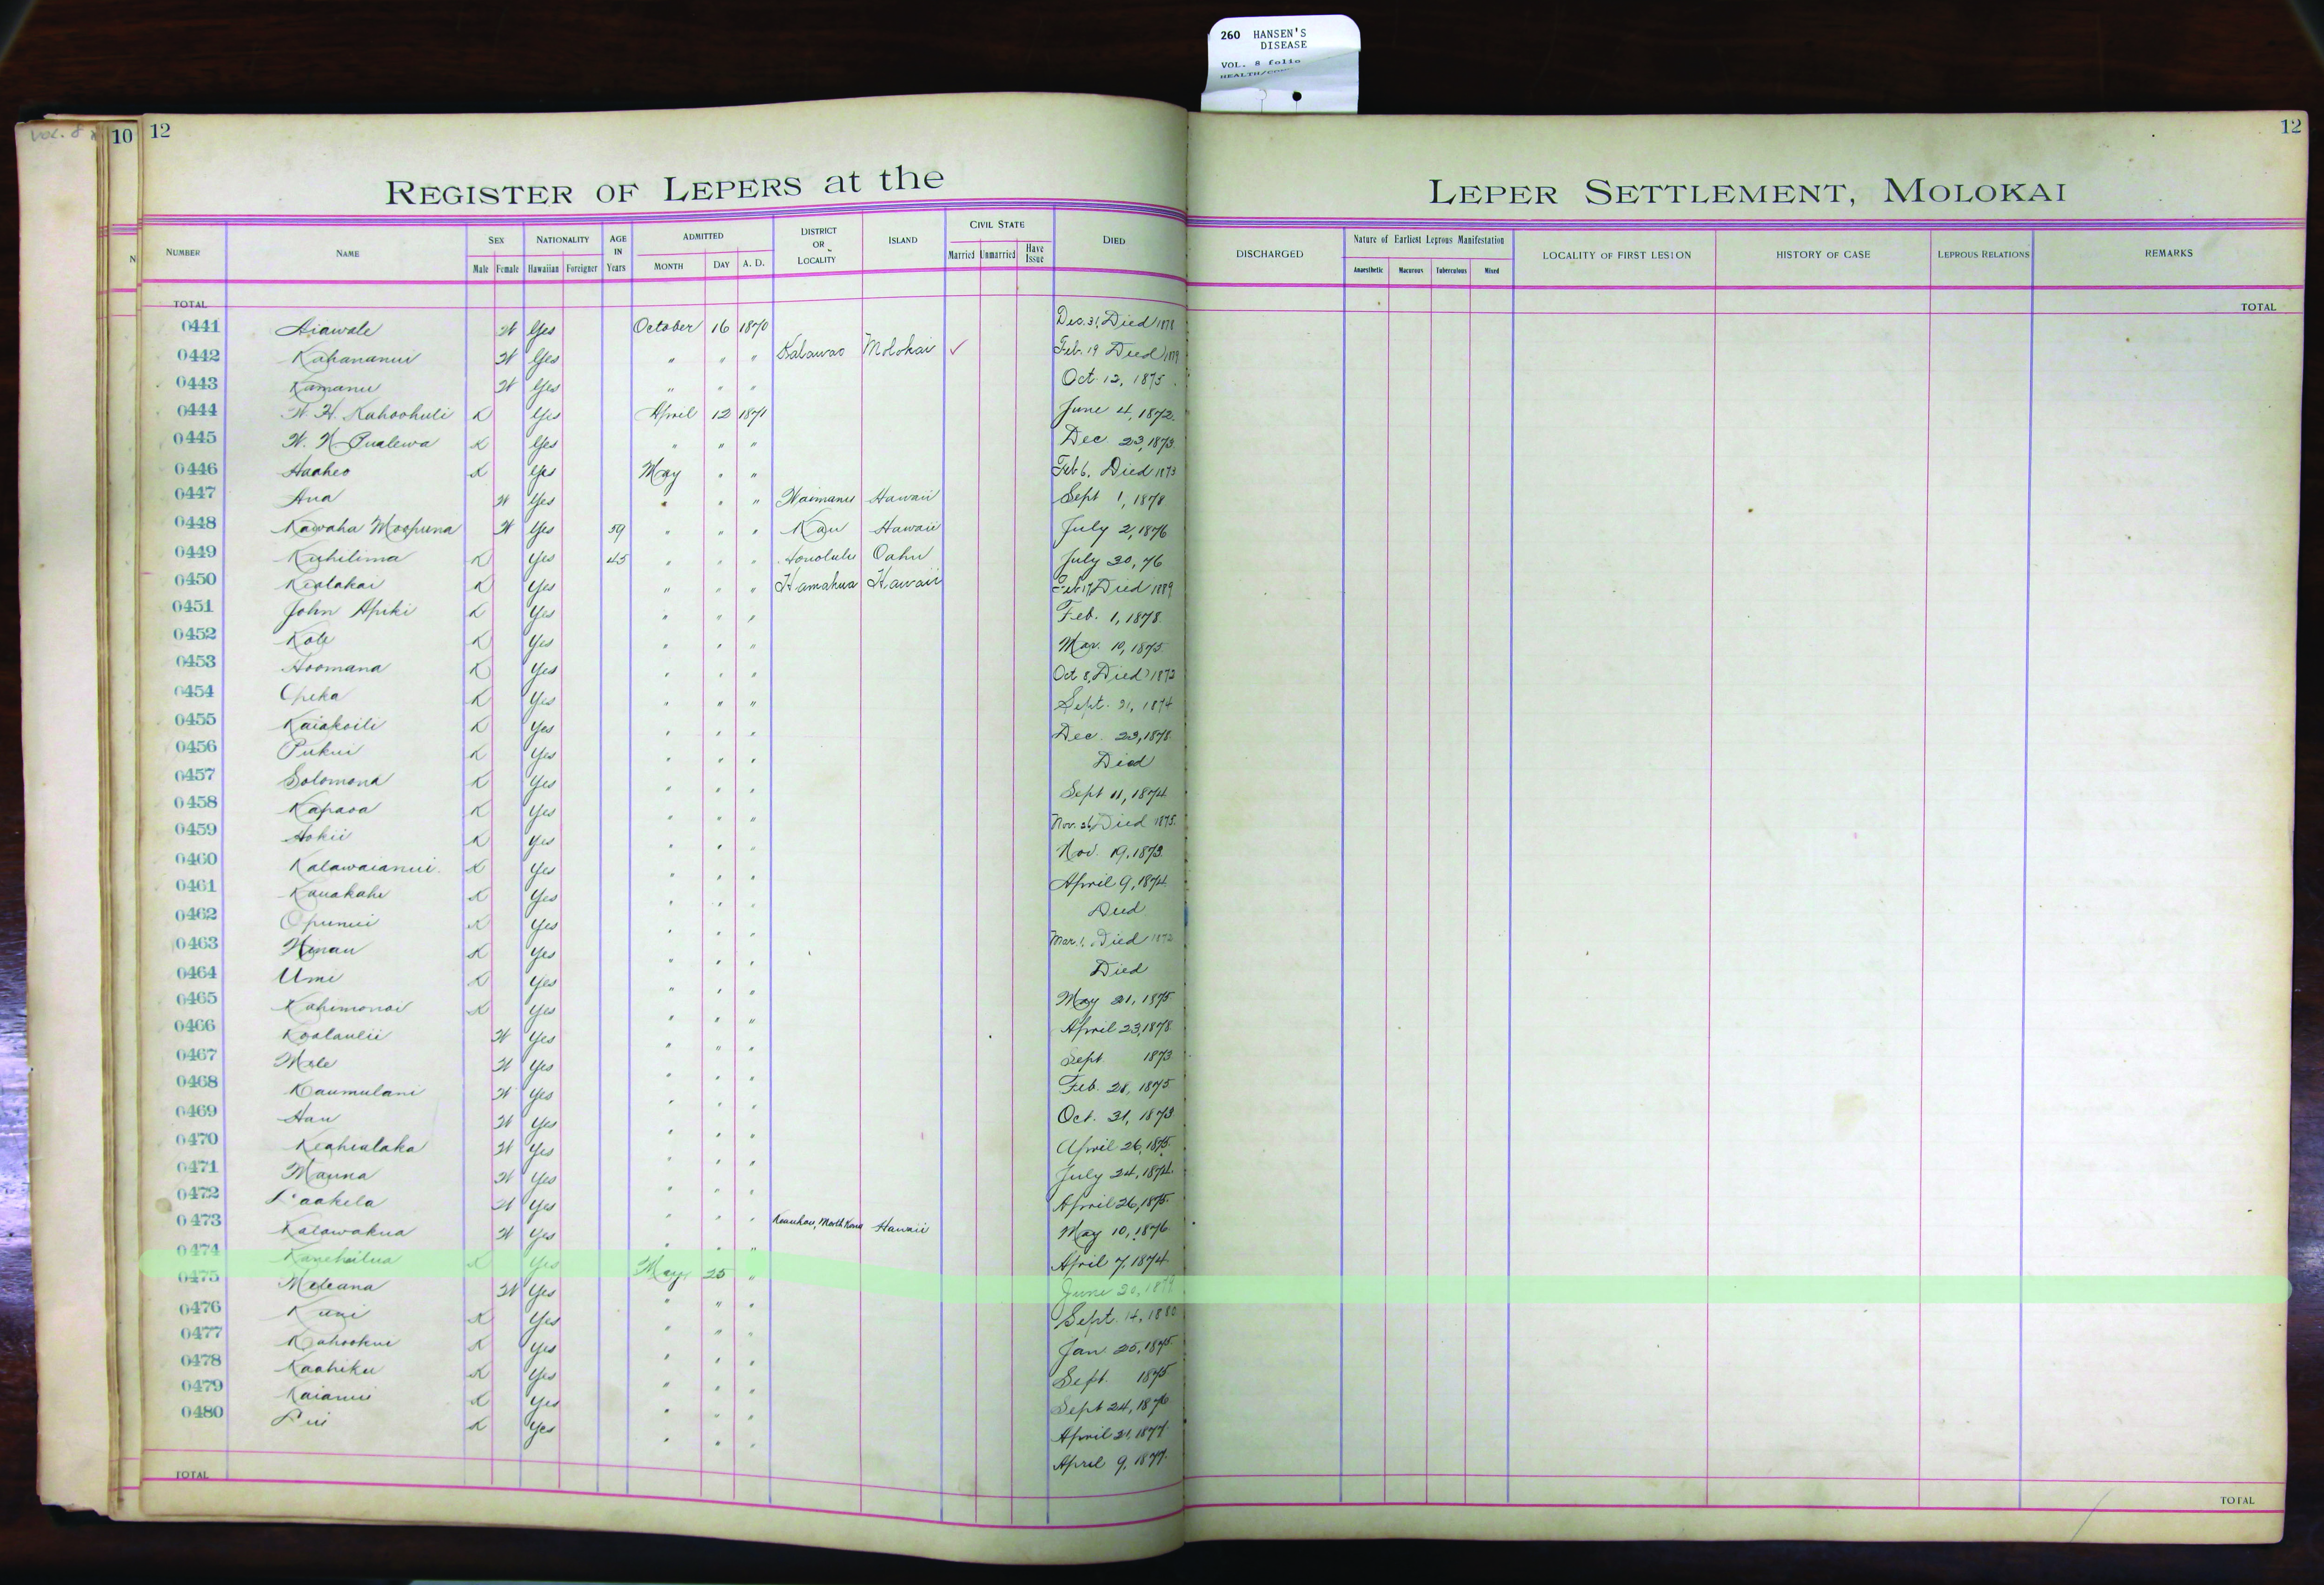 260 HANSEN'S
DISEASE
VOL. 8 folio
VOL. 8
10 12
12
REGISTER OF LEPERS at the LEPER SETTLEMENT, MOLOKAI
NUMBER NAME SEX Male Female NATIONALITY Hawaiian Foreigner AGE IN Years ADMITTED MONTH DAY A. D. DISTRICT OR LOCALITY ISLAND CIVIL STATE Married Unmarried Have Issue DIED DISCHARGED Nature of Earliest Leprous Manifestation Anaesthetic Macurous Tuberculous Mixed LOCALITY OF FIRST LESION HISTORY OF CASE LEPROUS RELATIONS REMARKS
TOTAL TOTAL
0441 Aiawale W Yes October 16 1870 Dec. 31, Died 1878
0442 Kahananui W Yes " " " Kalawao Molokai ✓ Feb. 19 Died
0443 Kamanu W Yes " " " Oct. 12, 1875
0444 W. H. Kahoohuli K Yes April 12 1871 June 4, 1872
0445 W. N. Pualewa K Yes " " " Dec 23, 1873
0446 Haaheo K Yes May " " Feb 6, Died 1873
0447 Ana W Yes " " " Waimanu Hawaii Sept 1, 1878
0448 Kawaha Moopuna W Yes 59 " " " Kau Hawaii July 2, 1876
0449 Kuhilima K Yes 45 " " " Honolulu Oahu July 30, 76
0450 Kealakai K Yes " " " Hamakua Hawaii Feb 17, Died 1889
0451 John Apiki K Yes " " " Feb. 1, 1878
0452 Kole K Yes " " " Mar. 10, 1875
0453 Hoomana K Yes " " " Oct 8, Died 1873
0454 Opeka K Yes " " " Sept. 21, 1874
0455 Kaiakoili K Yes " " " Dec. 23, 1878
0456 Pukui K Yes " " " Died
0457 Solomona K Yes " " " Sept 11, 1874
0458 Kapaoa K Yes " " " Nov. 26, Died 1875
0459 Hokii K Yes " " " Nov. 19, 1873
0460 Kalawaianui K Yes " " " April 9, 1874
0461 Kauakahi K Yes " " " Died
0462 Opunui K Yes " " " Mar. 1, Died
0463 Hinau K Yes " " " Died
0464 Umi K Yes " " " May 21, 1875
0465 Kahimonoi K Yes " " " April 23, 1878
0466 Koolaulii W Yes " " " Sept 1873
0467 Mele W Yes " " " Feb. 28, 1875
0468 Kaumulani W Yes " " " Oct. 31, 1873
0469 Hau W Yes " " " April 26, 1875
0470 Keahialaka W Yes " " " July 24, 1874
0471 Mauna W Yes " " " April 26, 1875
0472 Laakela W Yes " " " May 10, 1876
0473 Kalawakua W Yes " " " Keauhou, North Kona Hawaii April 7, 1874
0474 Kanehailua K Yes May 25 " June 20, 1879
0475 Meleana W Yes " " " Sept. 14, 1880
0476 Kuni K Yes " " " Jan 25, 1875
0477 Kahookui K Yes " " " Sept. 1875
0478 Kaahiku K Yes " " " Sept 24, 1876
0479 Kaianui K Yes " " " April 21, 1877
0480 Lui K Yes " " " April 9, 1877
TOTAL TOTAL